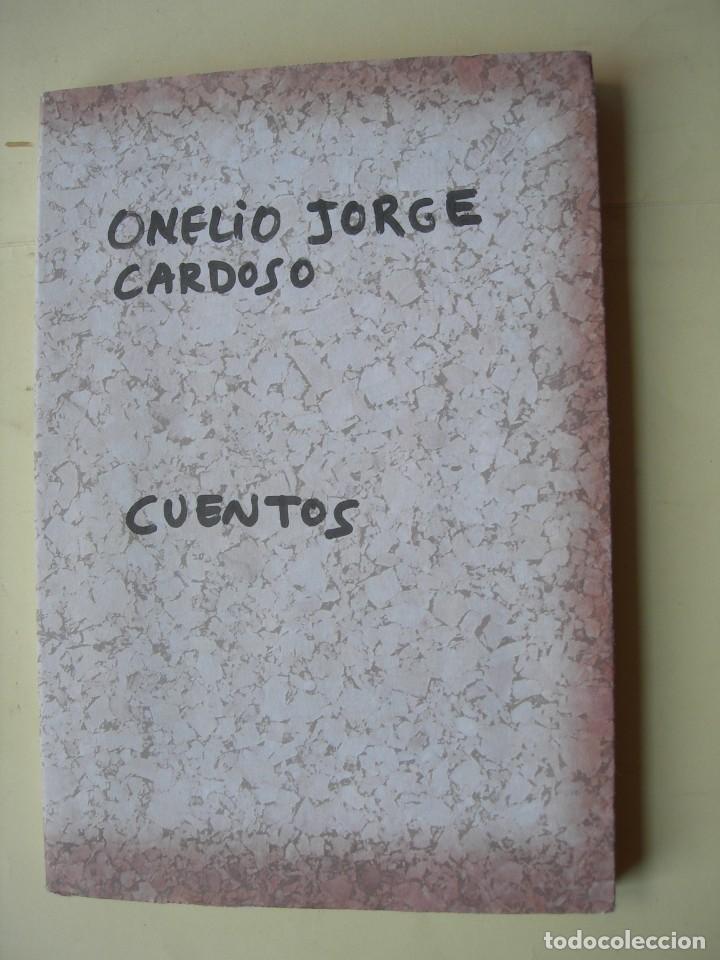 ONELIO JORGE
CARDOSO
CUENTOS
todocoleccion